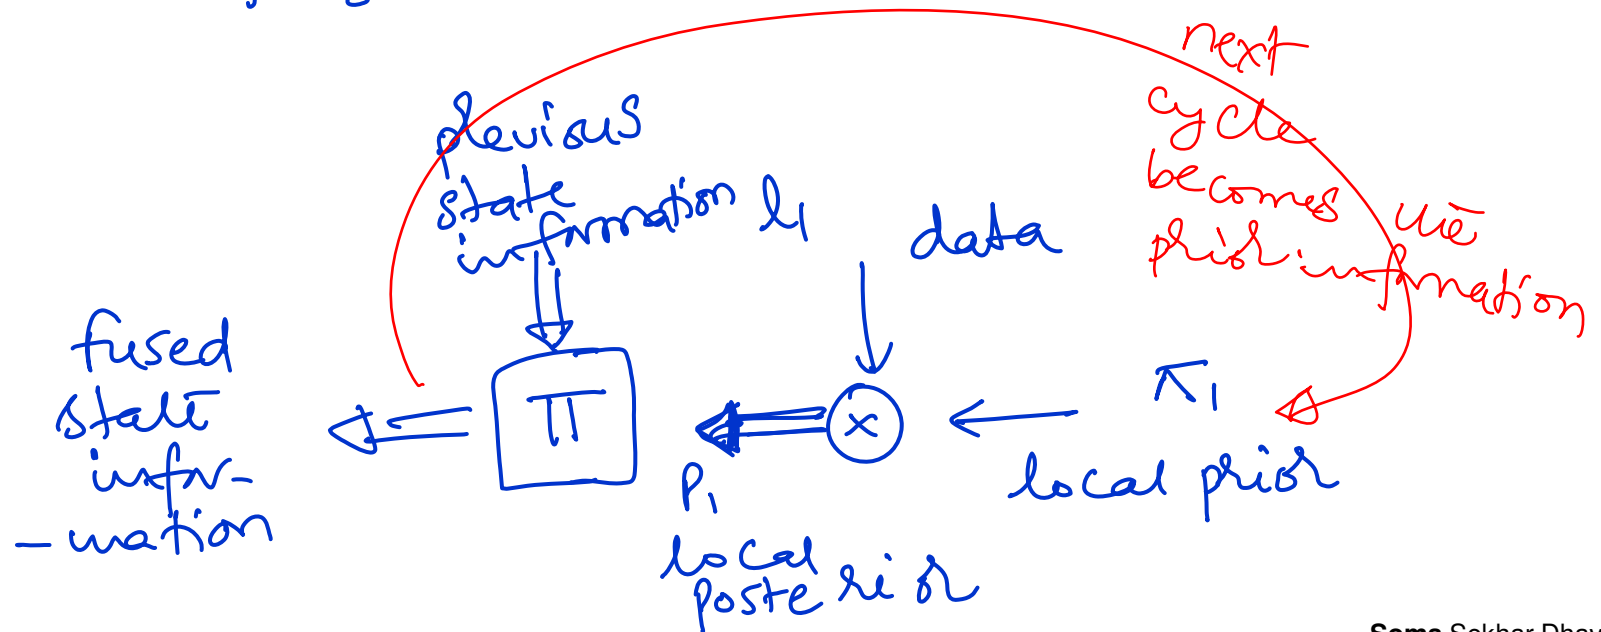 next
cycle
becomes
the
prior information
previous
state
information l1
data
fused
state
infor-
-mation
Π
×
π1
local prior
P1
local
posterior